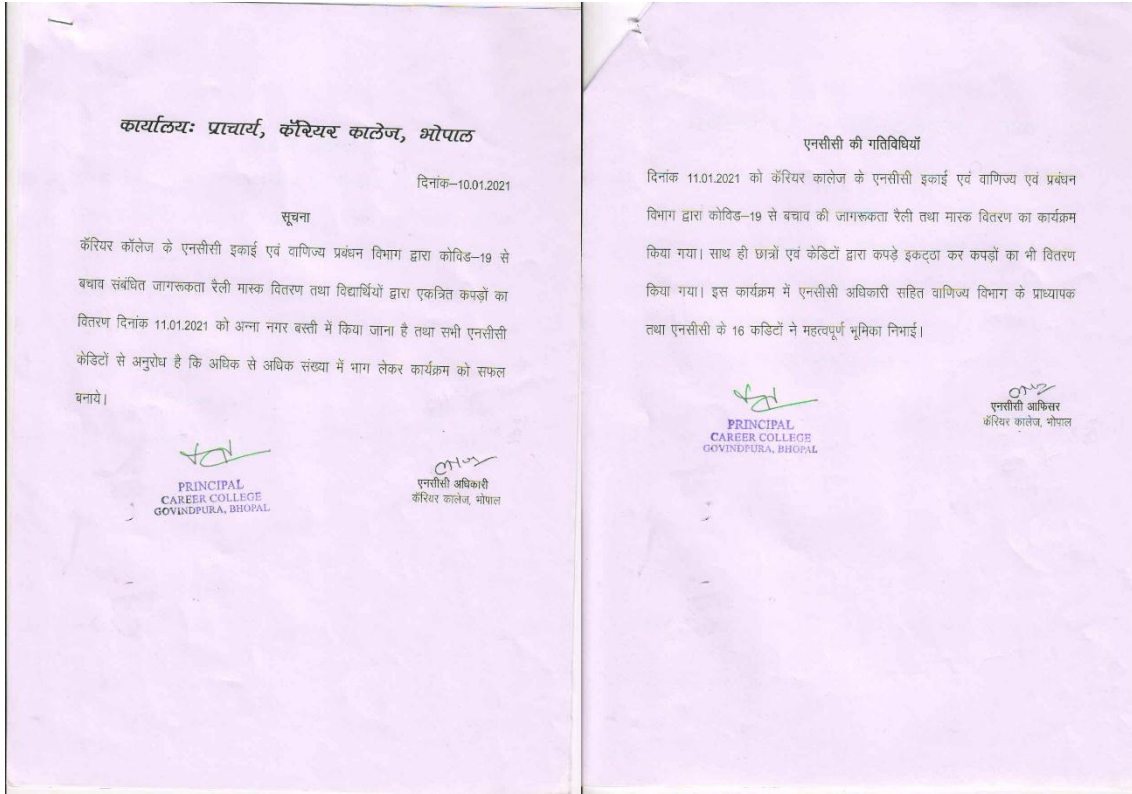 कार्यालयः प्राचार्य, कॅरियर कालेज, भोपाल
दिनांक–10.01.2021
सूचना
कॅरियर कॉलेज के एनसीसी इकाई एवं वाणिज्य प्रबंधन विभाग द्वारा कोविड–19 से
बचाव संबंधित जागरूकता रैली मास्क वितरण तथा विद्यार्थियों द्वारा एकत्रित कपड़ों का
वितरण दिनांक 11.01.2021 को अन्ना नगर बस्ती में किया जाना है तथा सभी एनसीसी
केडिटों से अनुरोध है कि अधिक से अधिक संख्या में भाग लेकर कार्यक्रम को सफल
बनाये।
PRINCIPAL
CAREER COLLEGE
GOVINDPURA, BHOPAL
एनसीसी अधिकारी
कॅरियर कालेज, भोपाल
एनसीसी की गतिविधियॉ
दिनांक 11.01.2021 को कॅरियर कालेज के एनसीसी इकाई एवं वाणिज्य एवं प्रबंधन
विभाग द्वारा कोविड–19 से बचाव की जागरूकता रैली तथा मास्क वितरण का कार्यक्रम
किया गया। साथ ही छात्रों एवं केडिटों द्वारा कपड़े इकट्ठा कर कपड़ों का भी वितरण
किया गया। इस कार्यक्रम में एनसीसी अधिकारी सहित वाणिज्य विभाग के प्राध्यापक
तथा एनसीसी के 16 कडिटों ने महत्वपूर्ण भूमिका निभाई।
PRINCIPAL
CAREER COLLEGE
GOVINDPURA, BHOPAL
एनसीसी आफिसर
कॅरियर कालेज, भोपाल